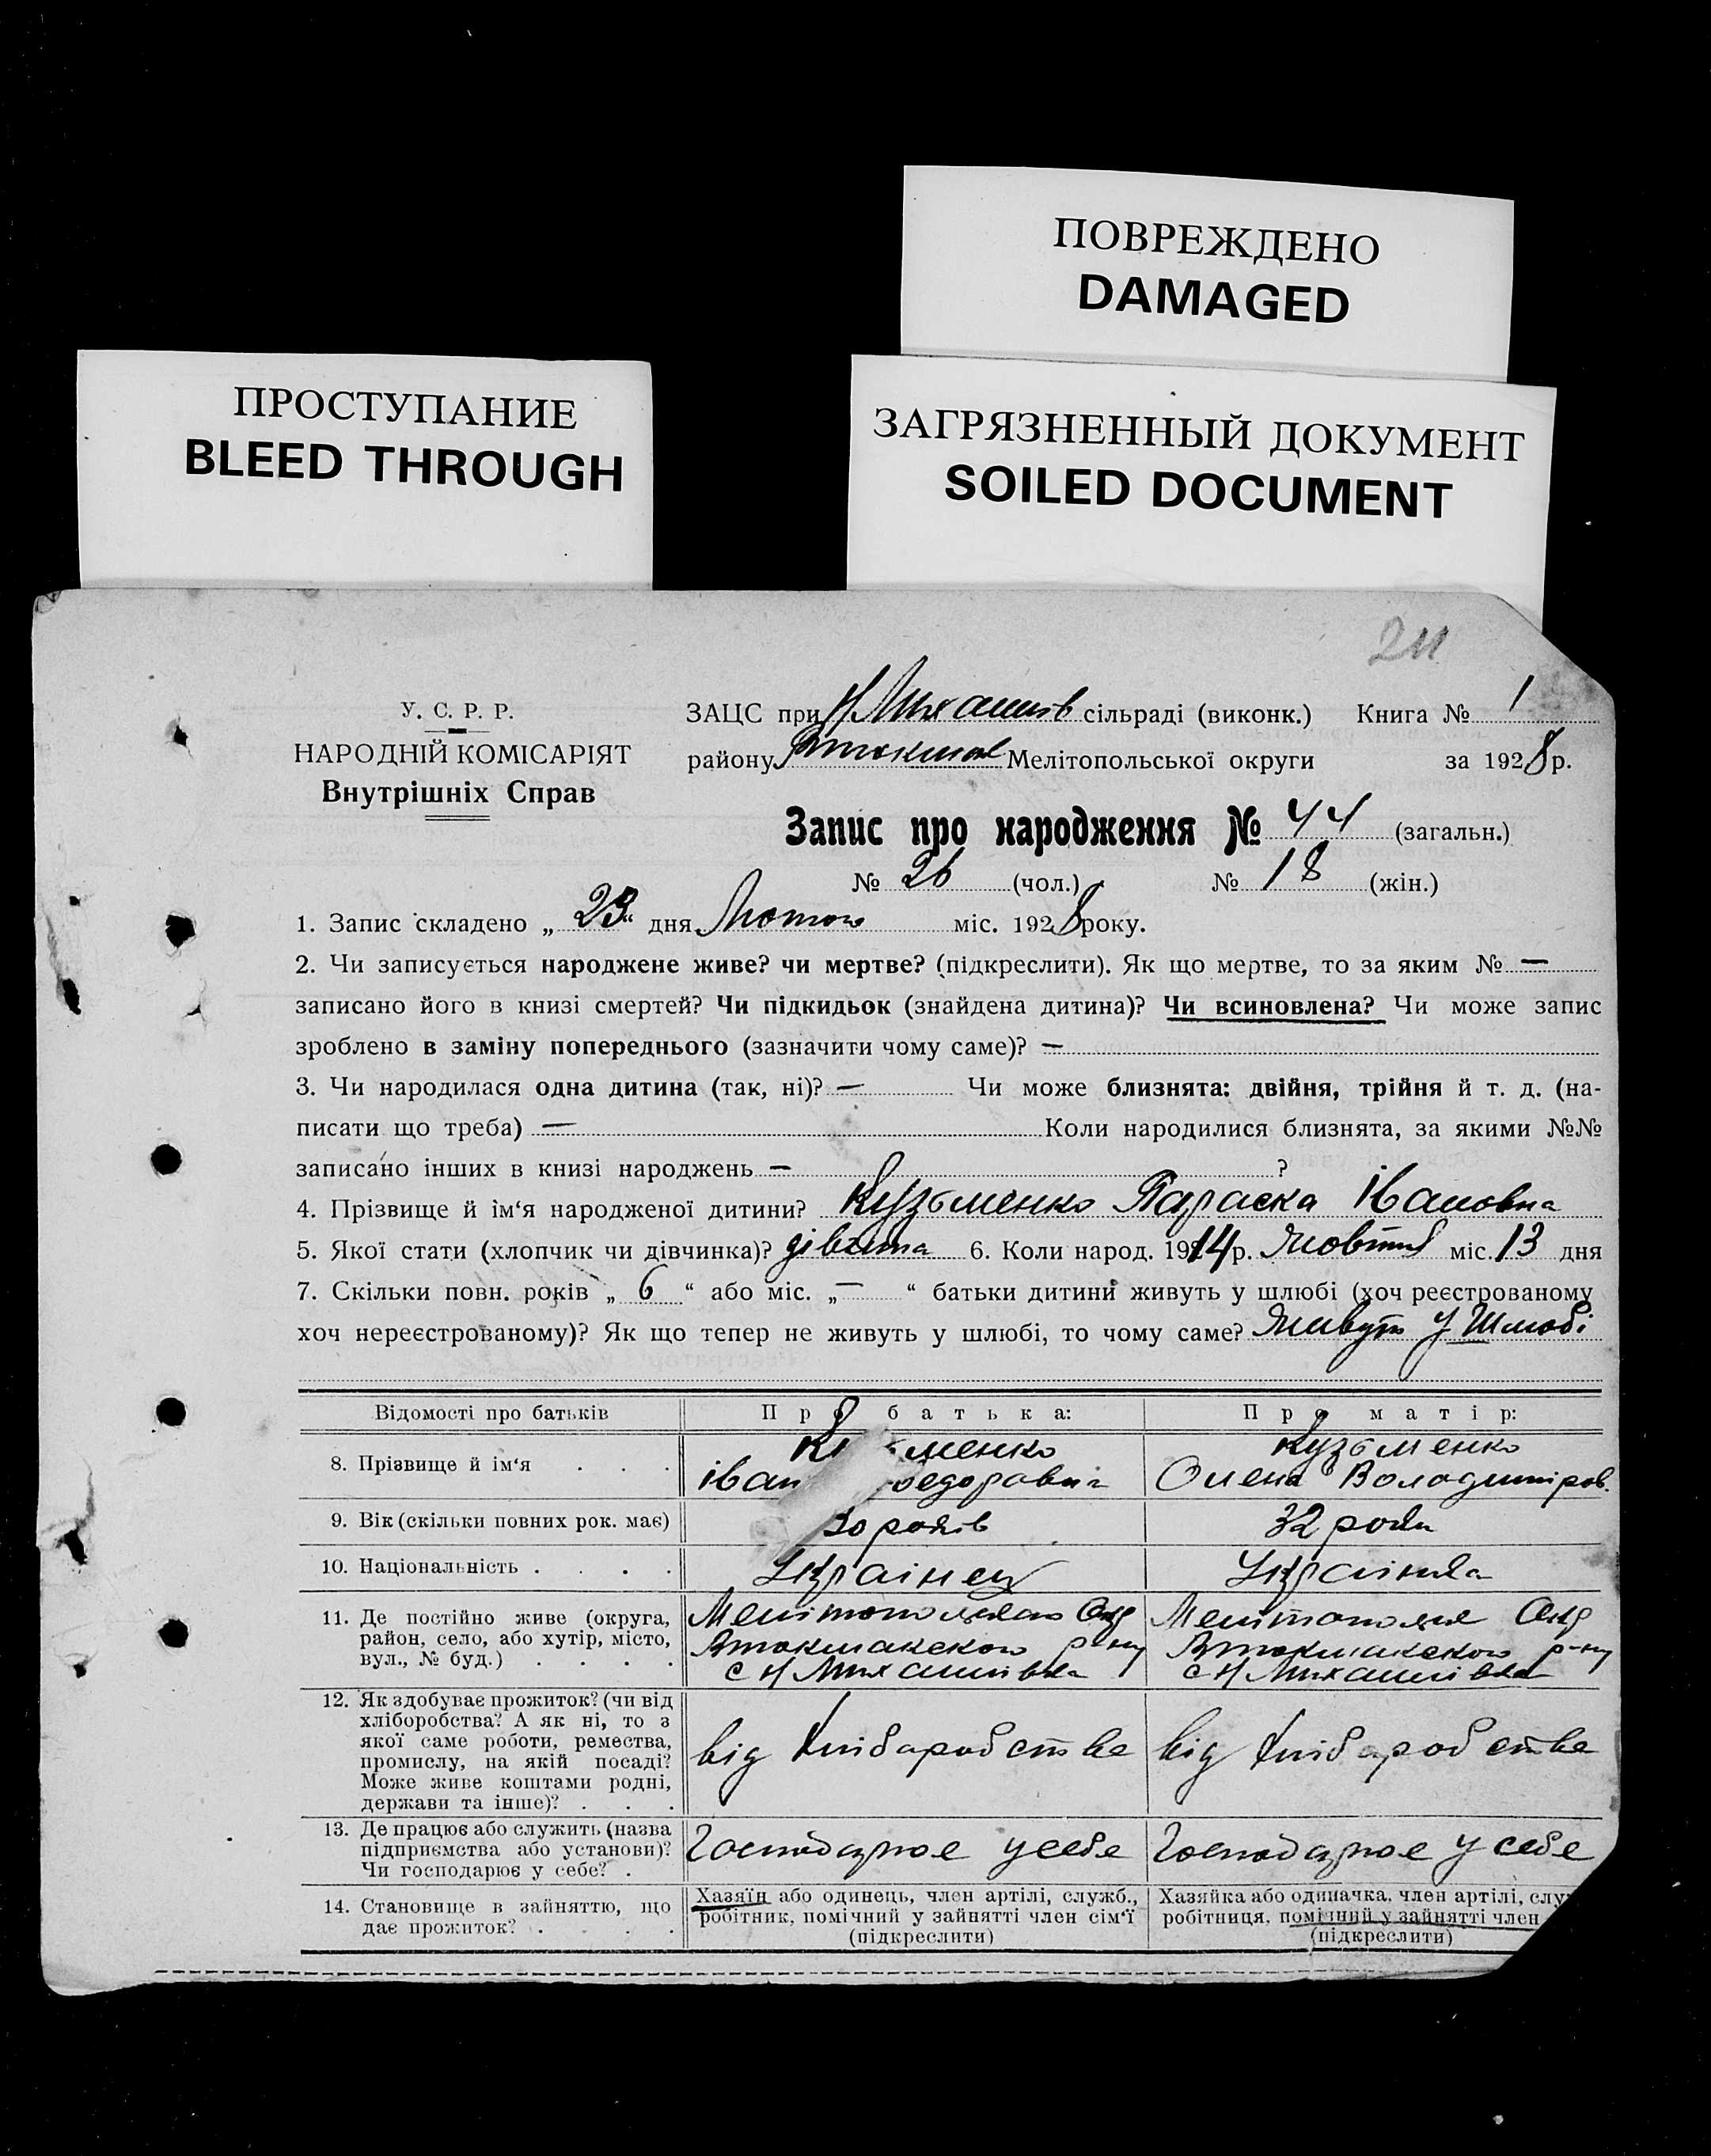 ПОВРЕЖДЕНО
DAMAGED
ПРОСТУПАНИЕ
BLEED THROUGH
ЗАГРЯЗНЕННЫЙ ДОКУМЕНТ
SOILED DOCUMENT
У. С. Р. Р.
НАРОДНІЙ КОМІСАРІЯТ
Внутрішніх Справ
ЗАЦС при Н Михайлів сільраді (виконк.) Книга № 1
району Втокмак Мелітопольської округи за 1928 р.
Запис про народження № 44 (загальн.)
№ 26 (чол.) № 18 (жін.)
1. Запис складено „ 23 “ дня Лютого міс. 1928 року.
2. Чи записується народжене живе? чи мертве? (підкреслити). Як що мертве, то за яким № —
записано його в книзі смертей? Чи підкидьок (знайдена дитина)? Чи всиновлена? Чи може запис
зроблено в заміну попереднього (зазначити чому саме)? —
3. Чи народилася одна дитина (так, ні)? — Чи може близнята: двійня, трійня й т. д. (на-
писати що треба) — Коли народилися близнята, за якими №№
записано інших в книзі народжень — ?
4. Прізвище й ім‘я народженої дитини? Кузьменко Параска Івановна
5. Якої стати (хлопчик чи дівчинка)? дівчина 6. Коли народ. 1914 р. Жовтня міс. 13 дня
7. Скільки повн. років „ 6 “ або міс. „ — “ батьки дитини живуть у шлюбі (хоч реєстрованому
хоч нереєстрованому)? Як що тепер не живуть у шлюбі, то чому саме? Живуть у Шлюбі
Відомості про батьків Про батька: Про матір:
8. Прізвище й ім‘я . . . Кузьменко Кузьменко
Іван Федорович Олена Володимиров.
9. Вік (скільки повних рок. має) 30 років 32 роки
10. Національність . . . . Українец Українка
11. Де постійно живе (округа, Мелітопольскаго Окр Мелітопольск Окр
район, село, або хутір, місто, Втокмакского р-ну Втокмакского р-ну
вул., № буд.) . . . . с Н Михайлівка с Н Михайлівка
12. Як здобуває прожиток? (чи від
хліборобства? А як ні, то з
якої саме роботи, ремества,
промислу, на якій посаді? від Хлібаробства від Хлібаробства
Може живе коштами родні,
держави та інше)? . . .
13. Де працює або служить (назва
підприємства або установи)? Господарює у себе Господарює у себе
Чи господарює у себе? .
14. Становище в зайняттю, що
дає прожиток? . . . .
Хазяїн або одинець, член артілі, служб.,
робітник, помічний у зайнятті член сім‘ї
(підкреслити)
Хазяйка або одиначка, член артілі,
робітниця, помічний у зайнятті член
(підкреслити)